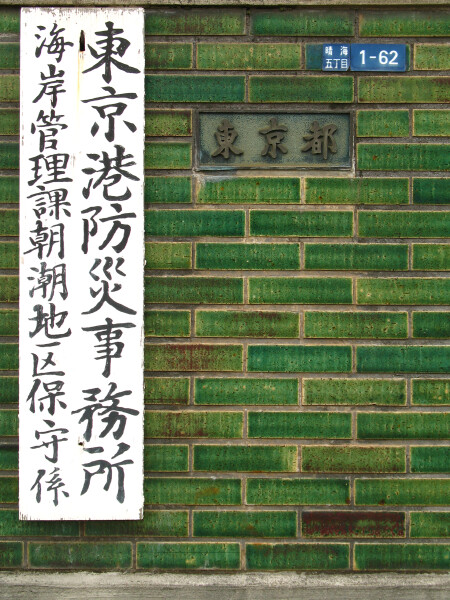 東京港防災事務所
海岸管理課朝潮地区保守係
東京都
晴海
五丁目
1-62